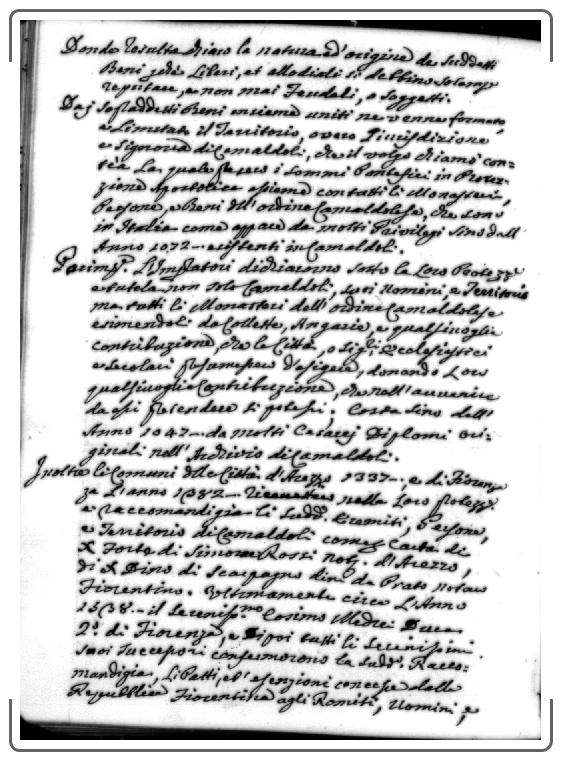 Donde risulta chiaro la natura ed'origine de Suddetti
Beni già Liberi, et allodiali si debbino sotempo
reputare, e non mai Feudali, o Soggetti.
Daj Sopraddetti Beni insieme uniti ne venne formato,
e Limitato il Territorio, overo Giurisdizione
e Signoria di Camaldoli, che il volgo chiamò con=
tea La quale i sommi Pontefici in Protez=
zione Apostolica assieme con tutti li Monasteri,
Persone, e Beni dell'ordine Camaldolese, che sono
in Italia come appare da molti Privilegi sino dall
Anno 1072 esistenti in Camaldoli.
L'Imperatori dichiarono sotto la Loro Protezze
e tutela non solo Camaldoli, suoi Uomini, e Territorio
ma tutti li Monasteri dell'ordine Camaldolese
esimendoli da Collette, Angarie, e qualsivoglia
contribuzione, che le Città, o Sig.ri Ecclesiastici
e Secolari presumessero d'esigere, donando Loro
qualsivoglia Contribuzione, che nell'auvenire
da essi pretendere si potessi; Costa sino dall'
Anno 1047 da molti Cesarej Diplomi ori=
ginali nell'Archivio di Camaldoli.
Inoltre li Comuni delle Città d'Arezzo 1337, e di Fioren
za L'anno 1382 riceverono nella Loro protezze
e raccomandigia li Sudd. Eremiti, Persone,
e Territorio di Camaldoli come Carta di
X Forte di Simone Rossi Not. d'Arezzo,
di X Dino di Scarpagno da Prato notaio
Fiorentino. Ultimamente circa L'Anno
1538 il Sereniss.mo Cosimo Medici Duca
2.o di Fiorenza, e Dipoi tutti li Serenissimi
suoi Successori confermorono la Sudd. Racco=
mandigia, Li Patti, et'esenzioni concesse dalla
Repubblica Fiorentina agli Romiti, Uomini, e